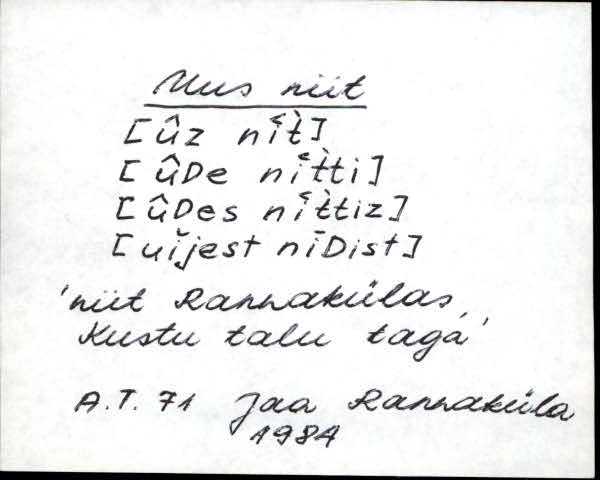 Uus niit
[ûz nī̀t̀]
[ûDe nī̀t̀ti]
[ûDes nī̀t̀tiz]
[uĭjest nīDist]
'niit Rannakülas,
Kustu talu taga'
A.T. 71 Jaa Rannaküla
1984